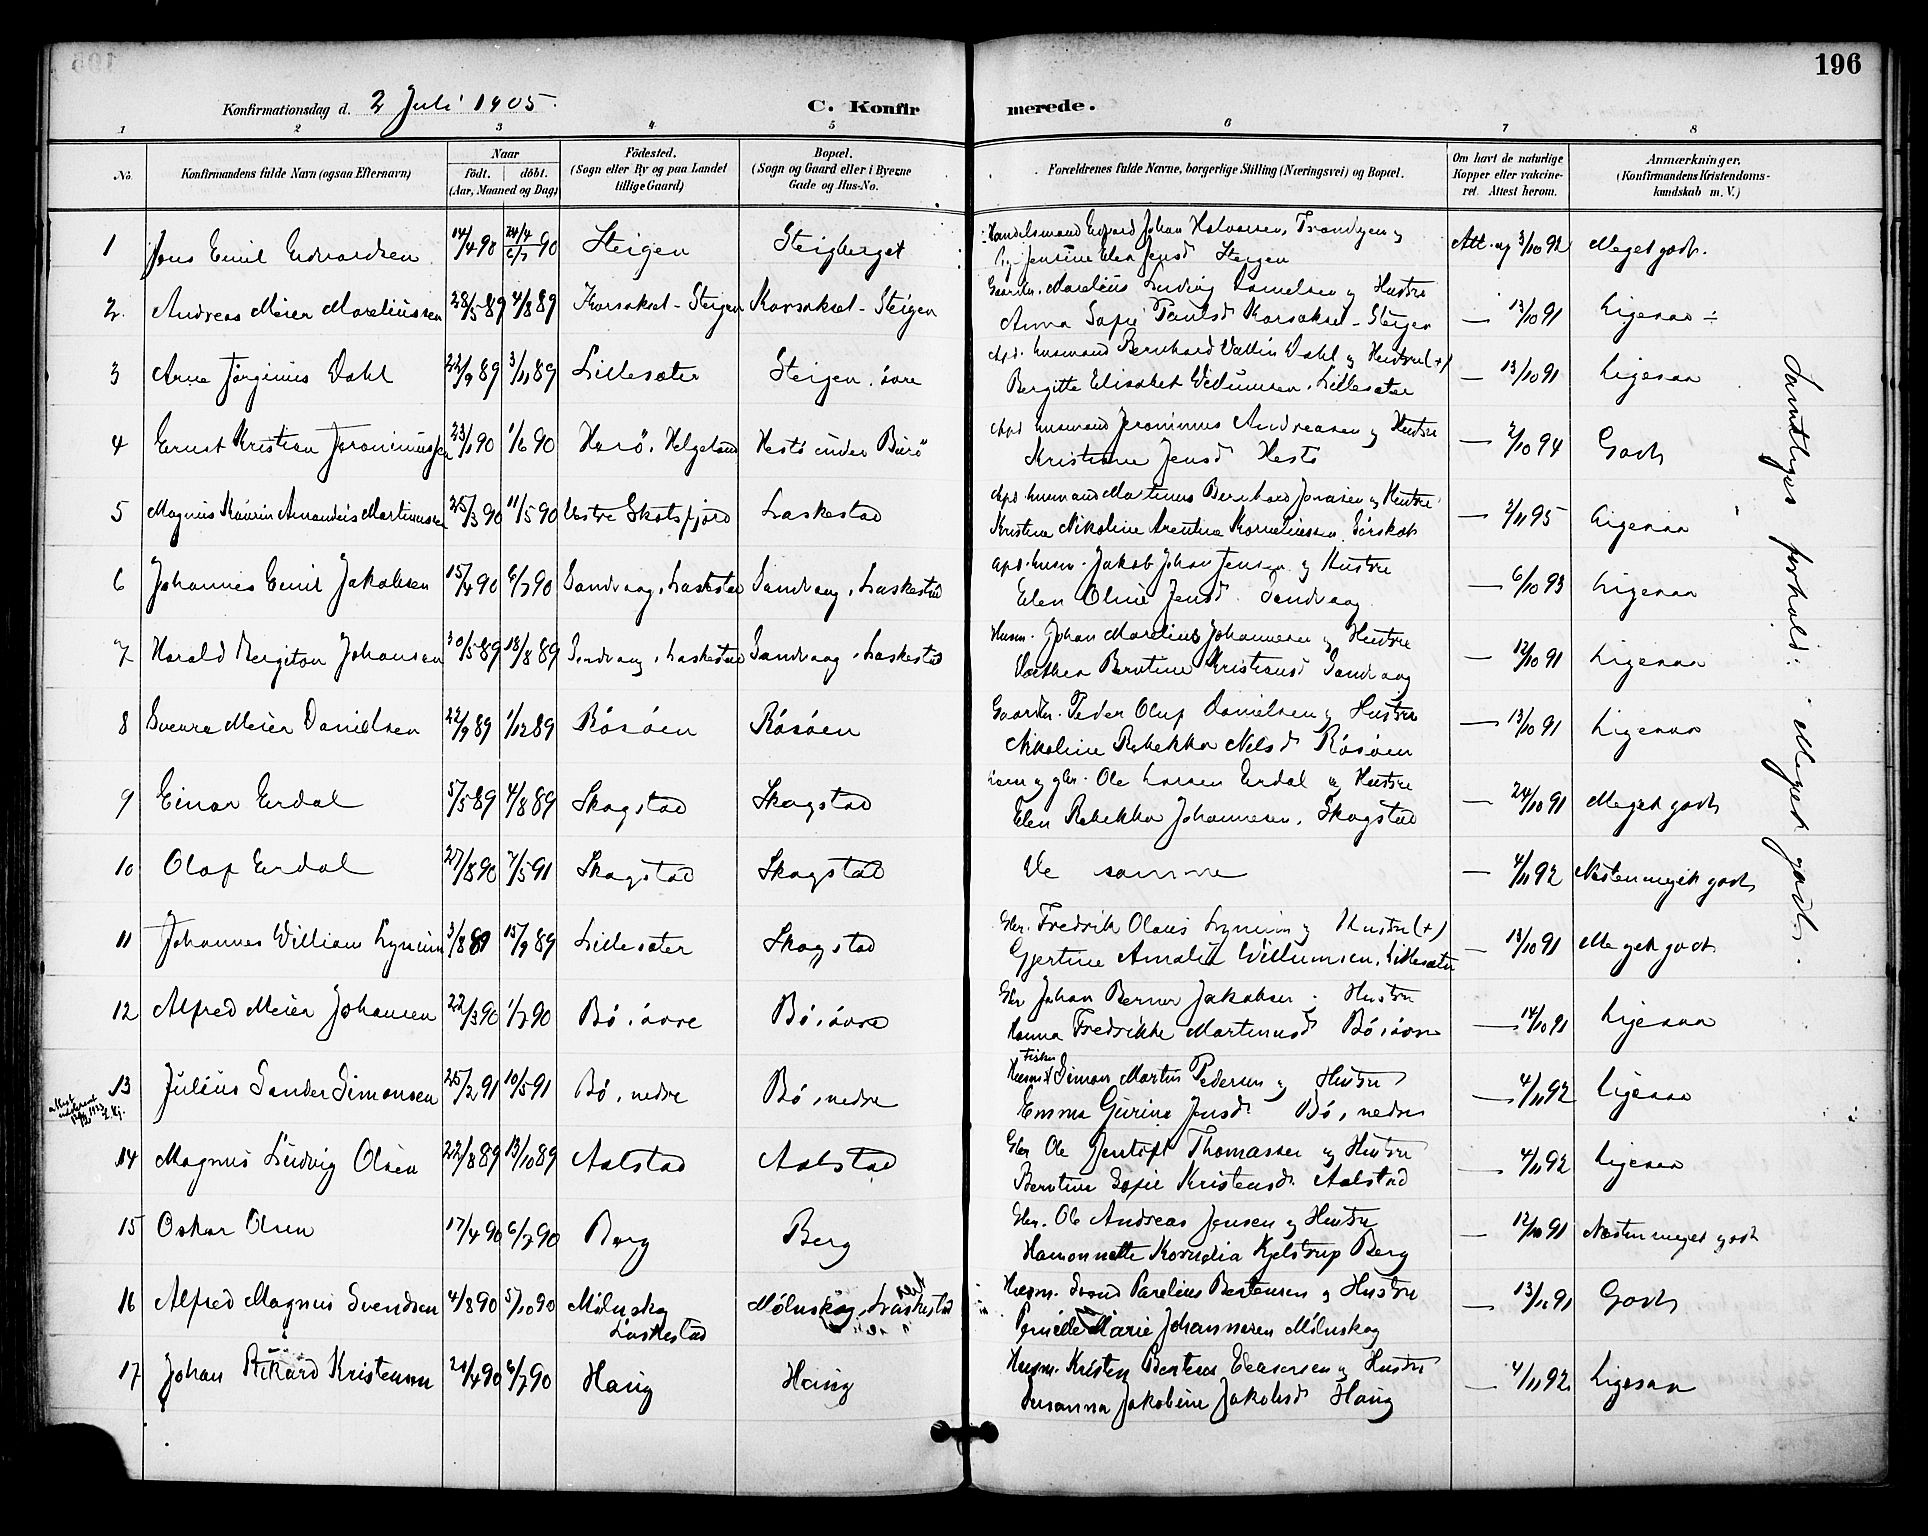 196
Konfirmationsdag d. 2 Juli 1905.
C. Konfirmerede.
1 2 3 4 5 6 7 8
No. Konfirmandens fulde Navn (ogsaa Efternavn) Naar født. døbt. (Aar, Maaned og Dag) Födested. (Sogn eller By og paa Landet tillige Gaard) Bopæl. (Sogn og Gaard eller i Byerne Gade og Hus-No. Forældrenes fulde Navne, borgerlige Stilling (Næringsvei) og Bopæl. Om havt de naturlige Kopper eller vaccineret. Attest herom. Anmærkninger, (Konfirmandens Kristendomskundskab m. V.)
1 Jens Emil Edvardsen 14/4 90 24/4 6/7 90 Steigen Steigberget Handelsmand Edvard Johan Halvorsen, Trondyen og
Jensine Elen Jensd Steigen Att. og 3/10 92 Meget godt.
2. Andreas Meier Mareliussen 28/5 89 4/8 89 Korsøkset - Steigen Korsøkset - Steigen Gaardbr. Marelius Ludvig Danielsen og Hustru
Anna Sofie Paulsd Korsøkset - Steigen — 13/10 91 Ligesaa
3 Arne Jørginus Dahl 22/9 89 3/11 89 Lillesæter Steigen, övre husmand Bernhard Vallin Dahl og Hustru (+)
Bergitte Elisabet Villumsen, Lillesæter — 13/10 91 Ligesaa
4 Ernst Kristian Jeronimussen 23/1 90 1/6 90 Herö, Helgeland Hestö under Burö husmand Jeronimus Andreasen og Hustru
Kristiane Jensd Hestö — 2/10 94 Godt
5 Magnus Kaurin Amandus Martinussen 25/3 90 11/5 90 Vestre Skotsfjord Laskestad husmand Martinus Bernhard Jonasen og Hustru
Kristine Nikoline Arentine Korneliussen — 2/11 95 Ligesaa
6 Johannes Emil Jakobsen 15/4 90 6/7 90 Sandvaag, Laskestad Sandvaag, Laskestad husm. Jakob Johan Jensen og Hustru
Elen Oline Jensd. Sandvaag — 6/10 93 Ligesaa
7 Harald Bergiton Johansen 30/5 89 18/8 89 Sandvaag, Laskestad Sandvaag, Laskestad Husm. Johan Marelius Johannesen og Hustru
Berntine Kristiansd Sandvaag — 12/10 91 Ligesaa
8 Sverre Meier Danielsen 22/9 89 1/12 89 Rösöen Rösöen Gaardbr. Peder Oluf Danielsen og Hustru
Nikoline Rebekka Nilsd Rösöen — 13/10 91 Ligesaa
9 Einar Erdal 5/5 89 4/8 89 Skagstad Skagstad og gbr. Ole Larsen Erdal og Hustru
Elen Rebekka Johannesen, Skagstad — 24/10 91 Meget godt
10 Olaf Erdal 27/8 90 7/5 91 Skagstad Skagstad De samme — 4/11 92 Næsten meget godt
11 Johannes William Lynum 3/8 89 15/9 89 Lillesæter Skagstad Gbr. Fredrik Olaus Lynum og Hustru (+)
Gjertine Amalia Villumsen, Lillesæter — 13/10 91 Meget godt
12 Alfred Meier Johansen 22/3 90 1/7 90 Bö, övre Bö, övre Gbr Johan Berner Jakobsen Hustru
Hanna Fredrikke Martinusd Bö, övre — 14/10 91 Ligesaa
13 Julius Sander Simonsen 25/2 91 10/5 91 Bö, nedre Bö, nedre Fisker
Husm. Simon Martin Pedersen og Hustru
Emma Gurine Jensd Bö, nedre — 4/11 92 Ligesaa
14 Magnus Ludvig Olsen 22/8 89 13/10 89 Aalstad Aalstad Gbr Ole Jentoft Thomassen og Hustru
Berntine Sofie Kristensd. Aalstad — 4/11 92 Ligesaa
15 Oskar Olsen 17/4 90 6/7 90 Berg Berg Gbr. Ole Andreas Jensen og Hustru
Hamonnette Kornelia Kjelstrup Berg — 12/10 91 Næsten meget godt
16 Alfred Magnus Svendsen 4/8 90 5/10 90 Mölnskog Laskestad Mölnskog, Laskestad Husm. Svend Parelius Bertensen og Hustru
Pernille Marie Johannesen Mölnskog — 13/11 91 Godt
17 Johan Rikard Kristensen 21/4 90 6/7 90 Haug Haug Husm. Kristen Benteus og Hustru
Susanna Jakobine Jakobsd Haug — 4/11 92 Ligesaa
Samtliges forhold: meget godt.